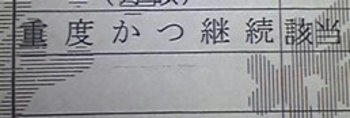 重度かつ継続該当